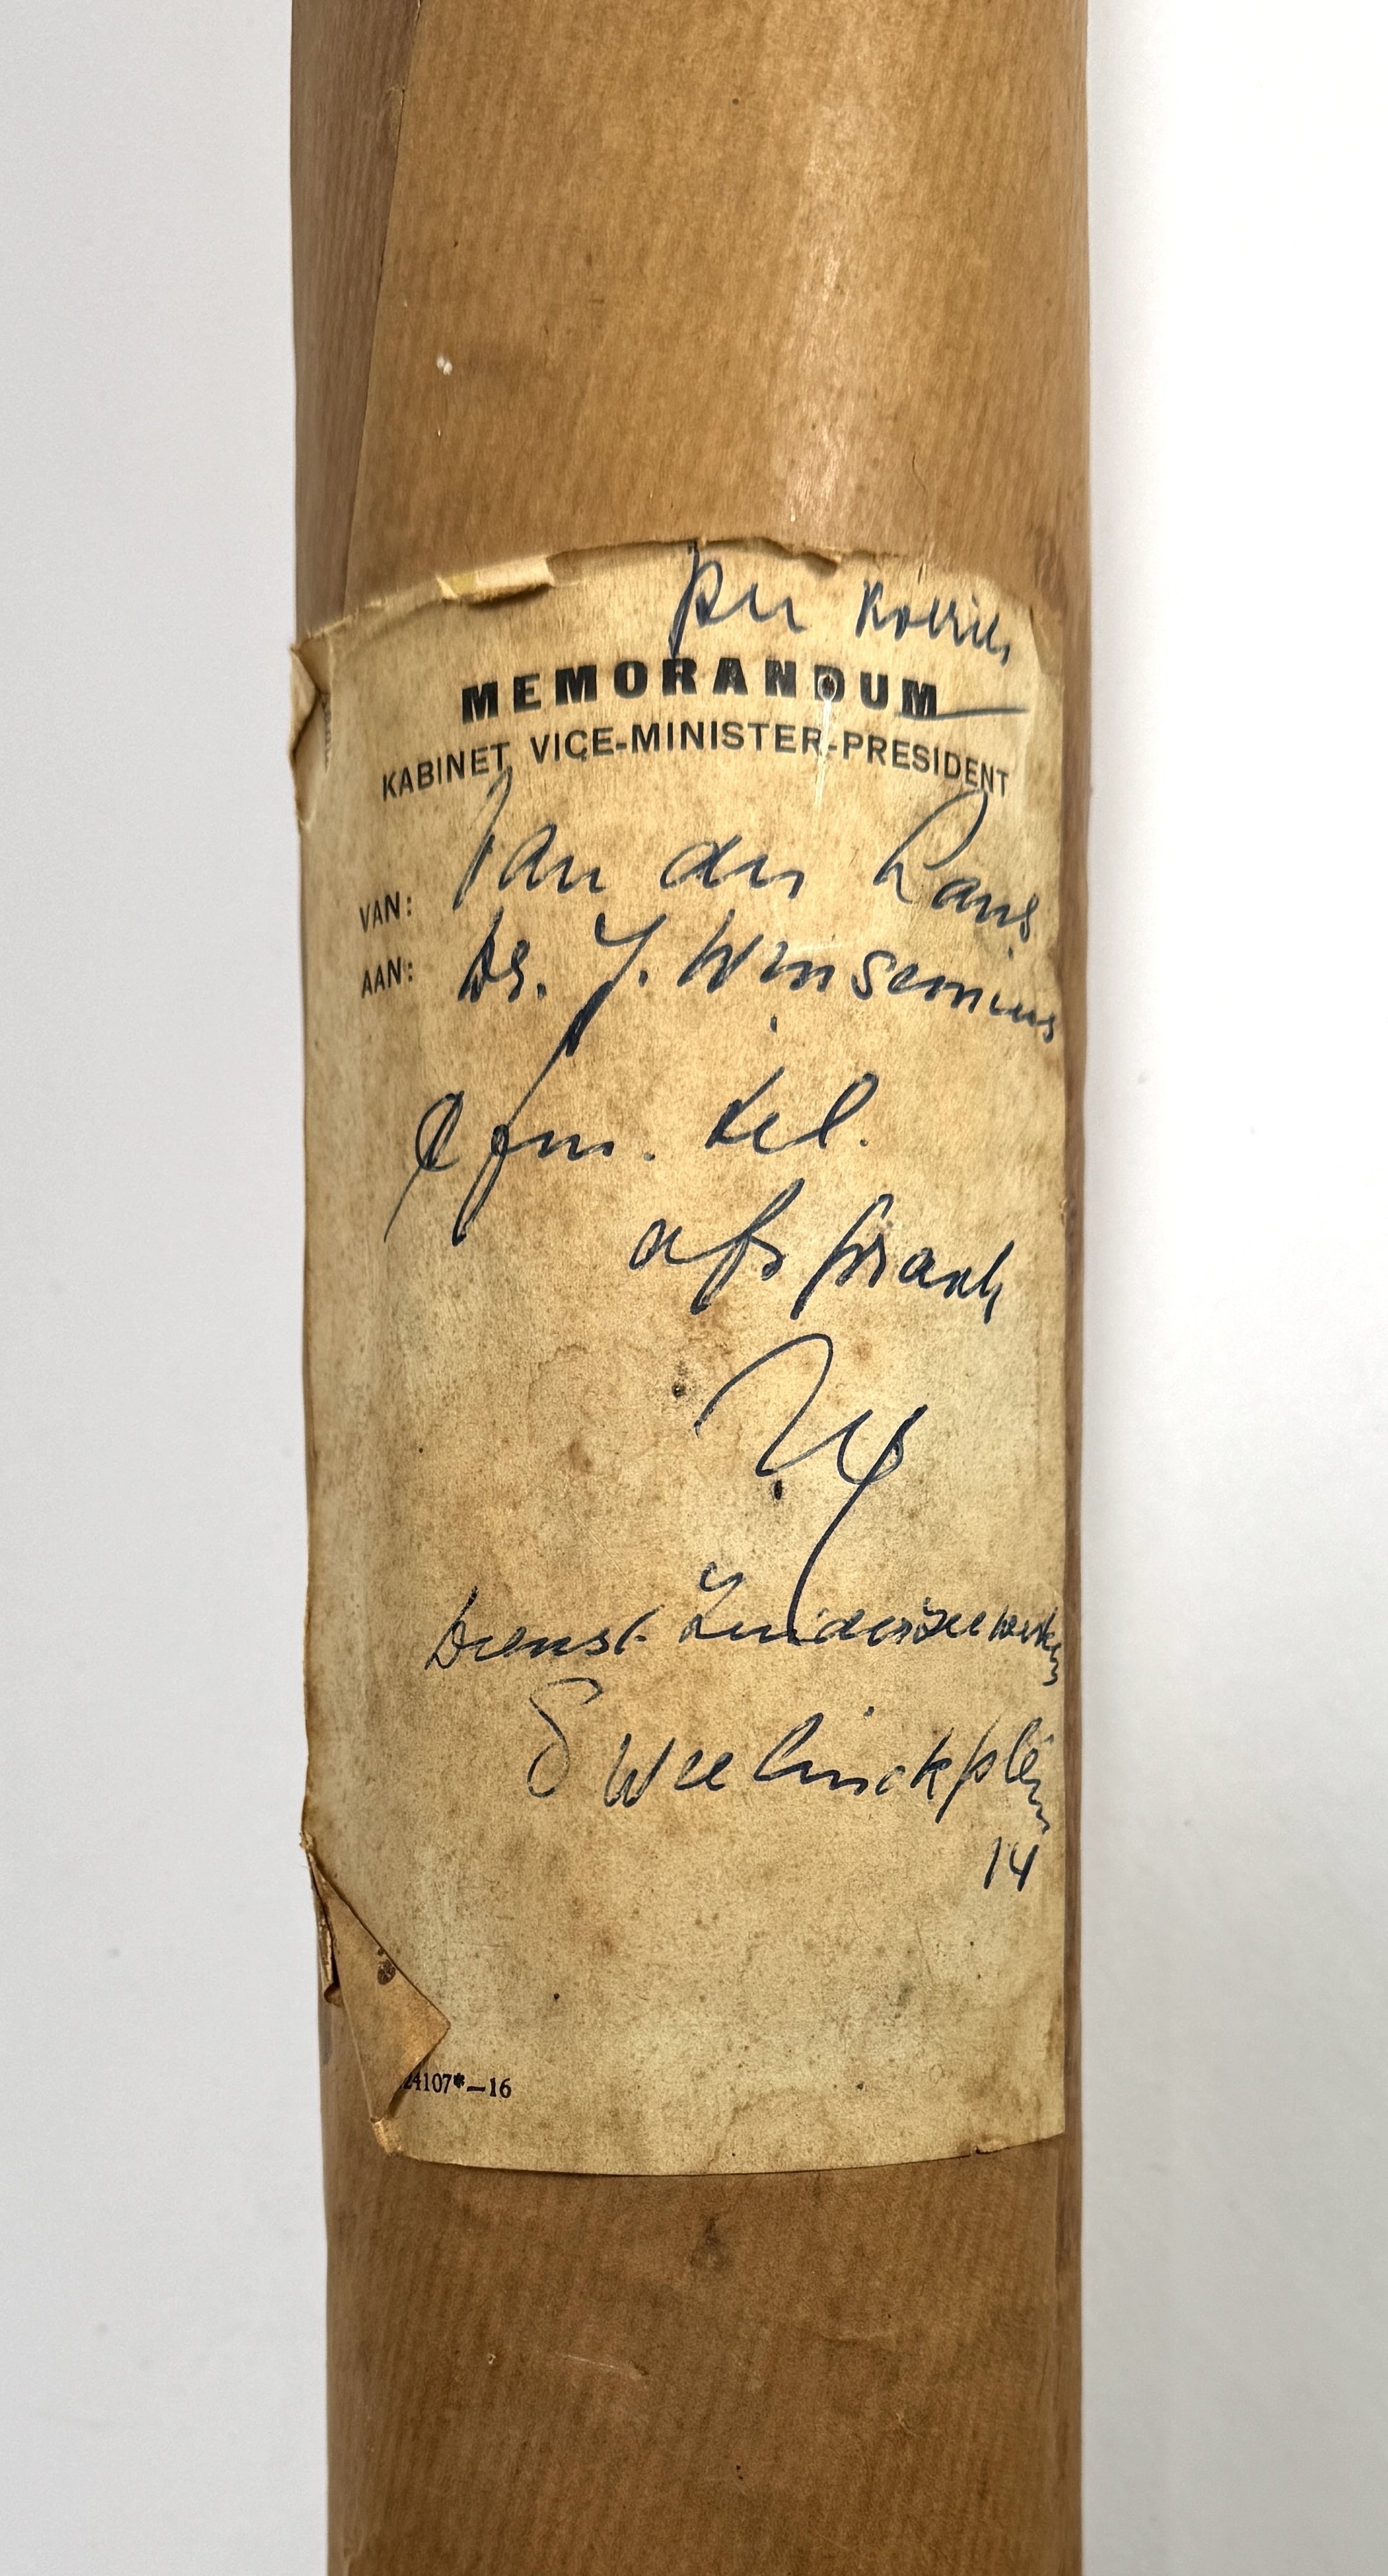 per koerier
MEMORANDUM
KABINET VICE-MINISTER-PRESIDENT
VAN: Van der Laus
AAN: Ds. J. Winsemius
Cfm. tel.
afspraak
Dienst Zuiderzeewerken
Sweelinckplein
14
24107*-16